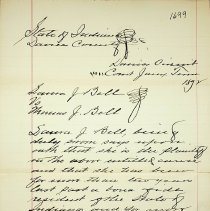 1699
State of Indiana
Daviess County
Daviess Circuit
Court June Term
1892
Laura J. Bell
Vs
Thomas J. Bell
Laura J. Bell, being
duly sworn says upon
oath that she is the plaintiff
in the above entitled cause
and that she has been
for more than two years
last past a bona fide
resident of the State of
Indiana and for more